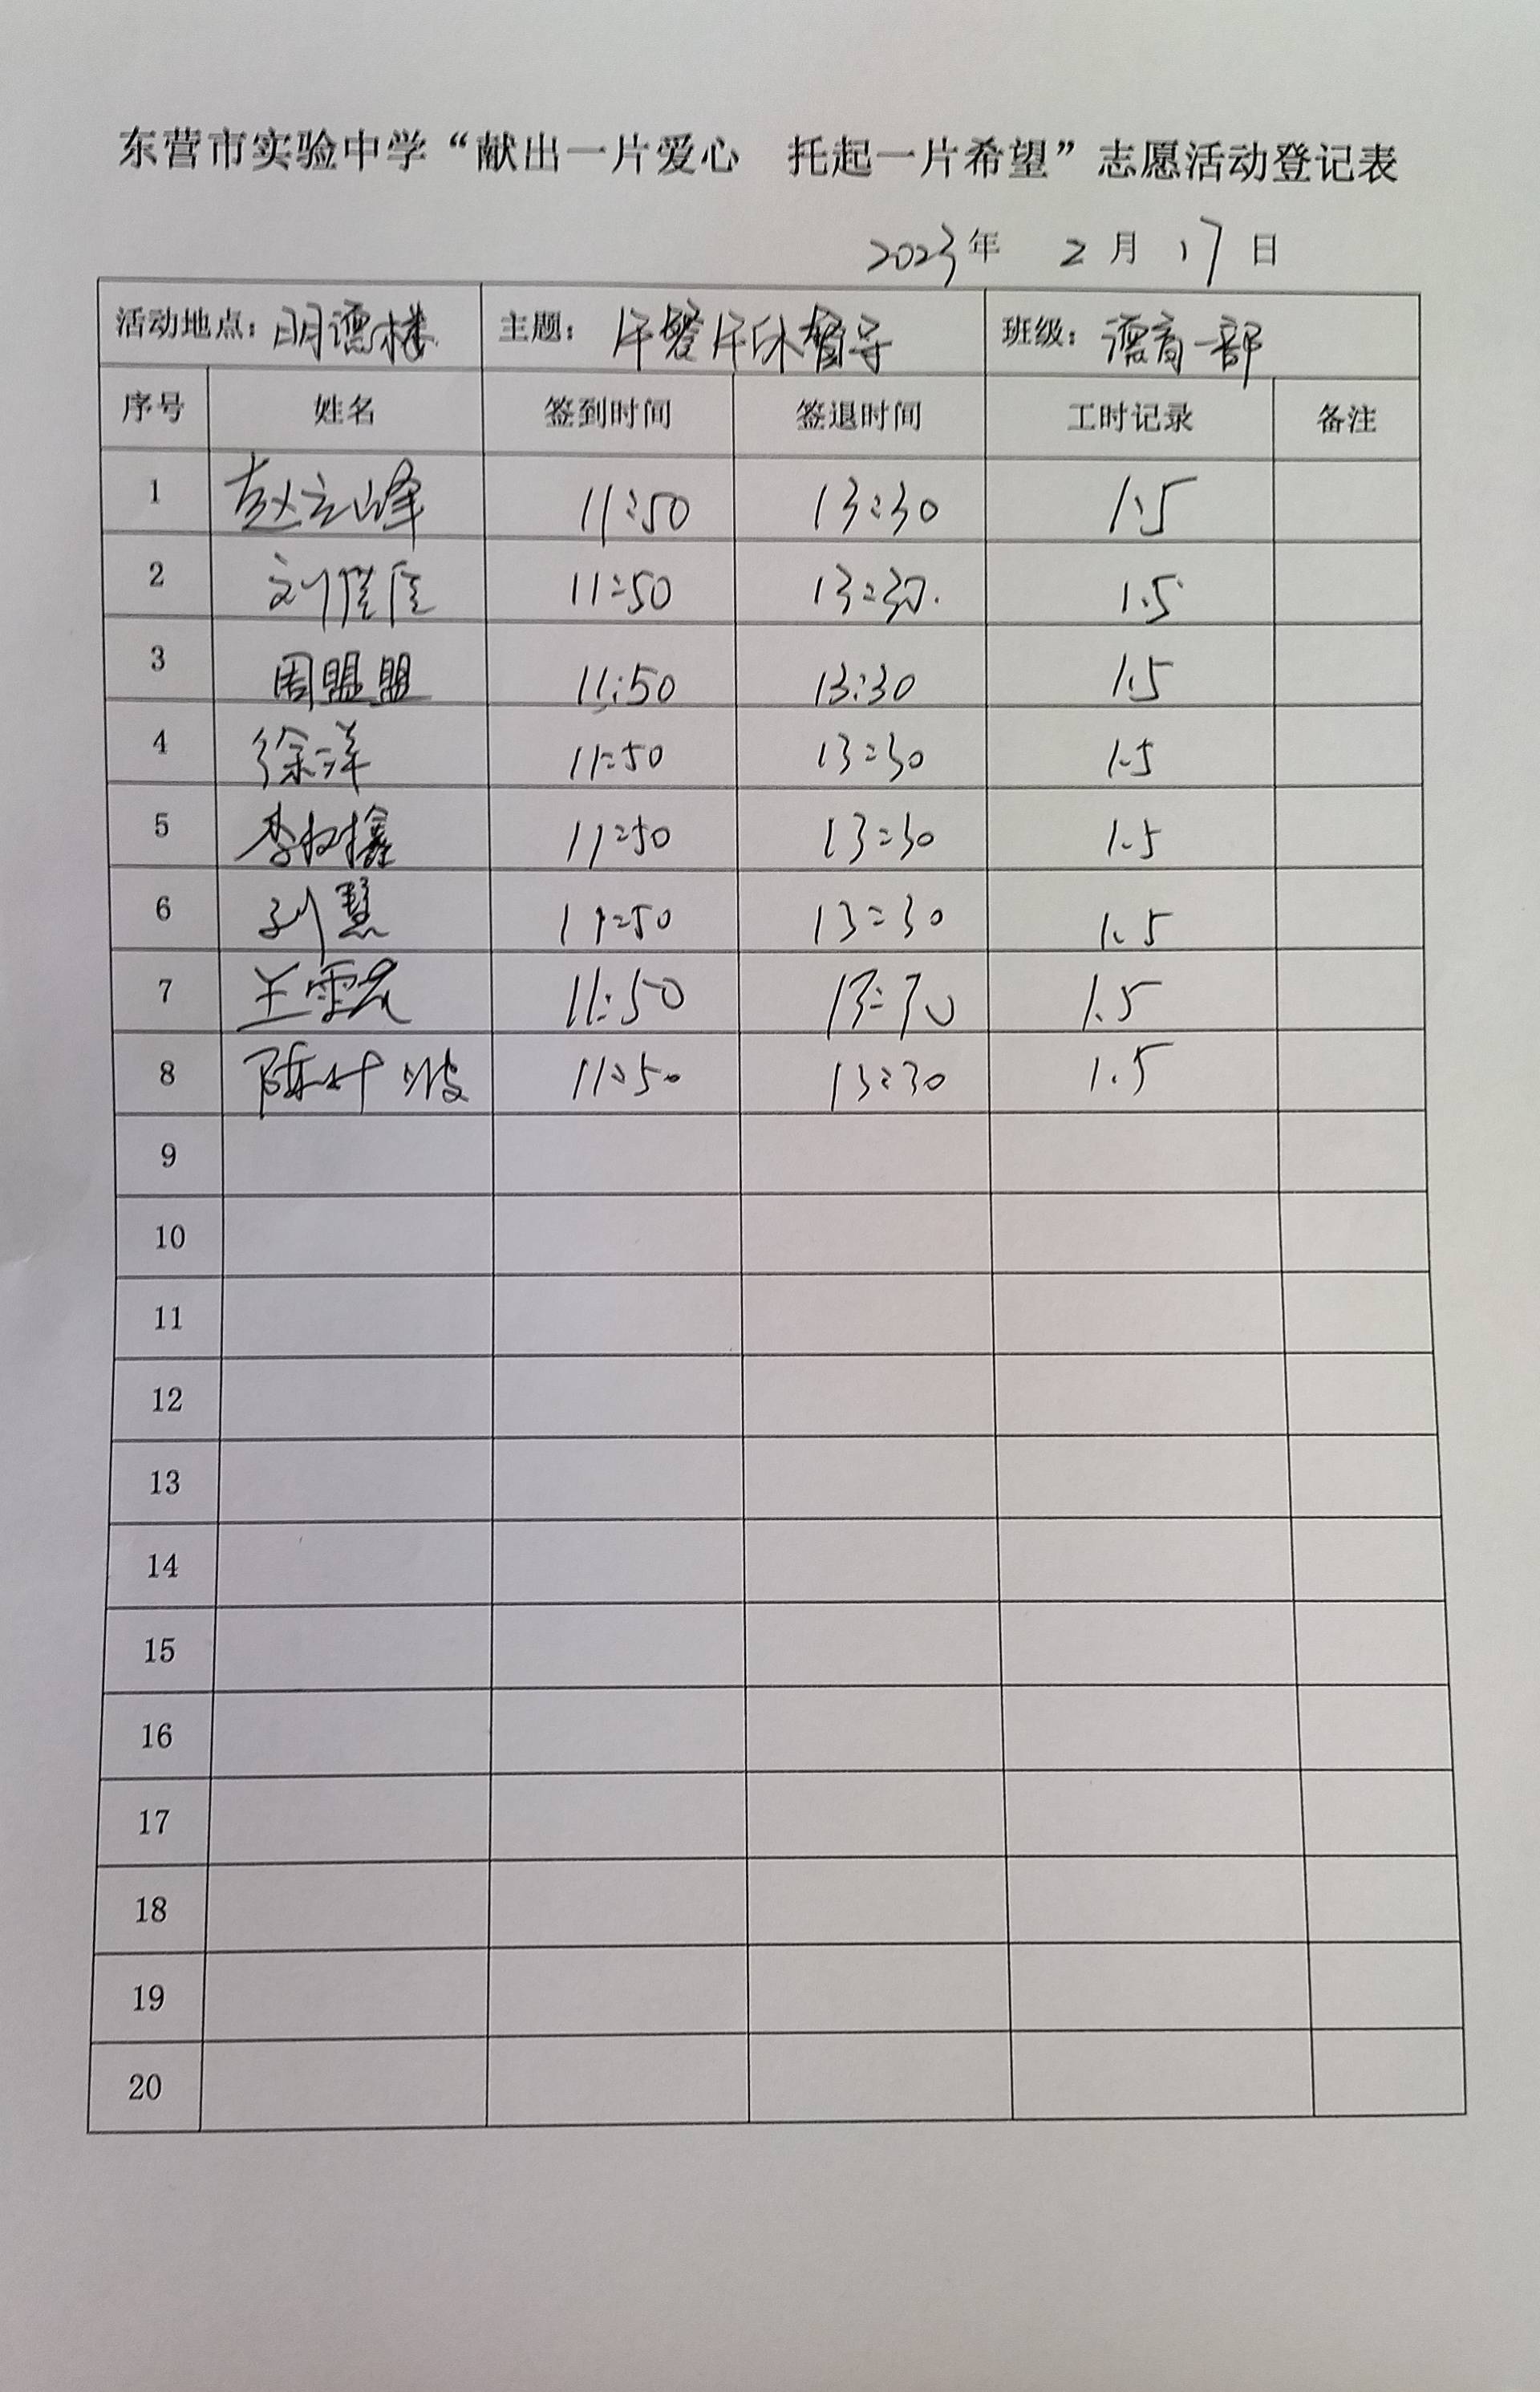 东营市实验中学“献出一片爱心 托起一片希望”志愿活动登记表
2023年 2月 17日
活动地点：明德楼 主题：午餐午休督导 班级：德育一部
序号 姓名 签到时间 签退时间 工时记录 备注
1 赵立峰 11:50 13:30 1.5
2 刘 11:50 13:30. 1.5
3 周盟盟 11:50 13:30 1.5
4 徐洋 11:50 13:30 1.5
5 李树鑫 11:50 13:30 1.5
6 刘慧 11:50 13:30 1.5
7 王雪 11:50 13:30 1.5
8 陈叶波 11:50 13:30 1.5
9
10
11
12
13
14
15
16
17
18
19
20